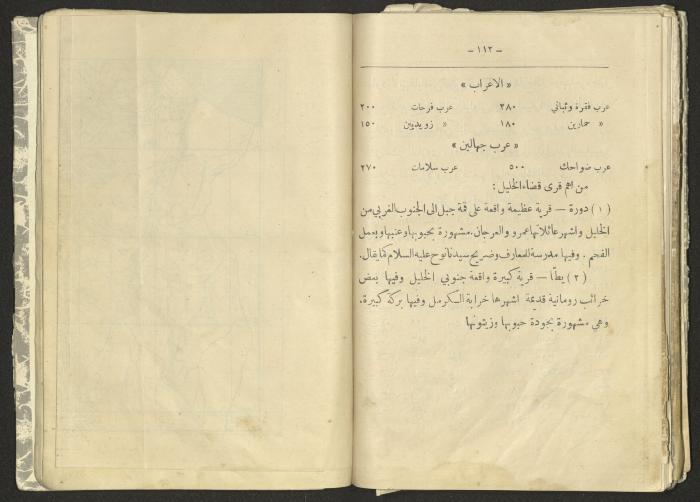 - ١١٢ -
« الاعراب »
عرب فقرة وئباتي ٢٨٠ عرب فرحات ٢٠٠
« عمارين ١٨٠ « زويديين ١٥٠
« عرب جهالين »
عرب ضواحك ٥٠٠ عرب سلامات ٢٧٠
من اهم قرى قضاء الخليل :
( ١ ) دورة — قرية عظيمة واقعة على قمة جبل الى الجنوب الغربي من
الخليل واشهر عائلاتها عمرو والعرجان . مشهورة بحبوبها وعنبها وبعمل
الفحم . وفيها مدرسة للمعارف وضريح سيدنا نوح عليه السلام كما يقال .
( ٢ ) يطّا — قرية كبيرة واقعة جنوبي الخليل وفيها بعض
خرائب رومانية قديمة اشهرها خرابة الكرمل وفيها بركة كبيرة .
وهي مشهورة بجودة حبوبها وزيتونها